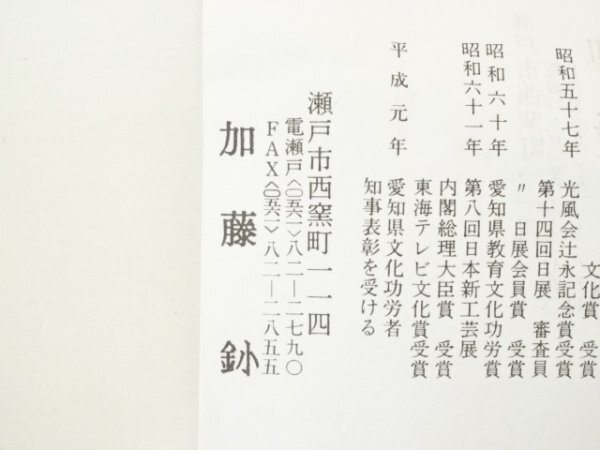 文化賞　受賞
昭和五十七年　光風会辻永記念賞受賞
第十四回日展　審査員
〃　日展会員賞　受賞
昭和六十年　愛知県教育文化功労賞
昭和六十一年　第八回日本新工芸展
内閣総理大臣賞　受賞
東海テレビ文化賞受賞
平成元年　愛知県文化功労者
知事表彰を受ける
瀬戸市西窯町一一四
電瀬戸〈〇五六一〉八二―二七九〇
FAX〈〇五六一〉八二―二八五五
加藤鈔